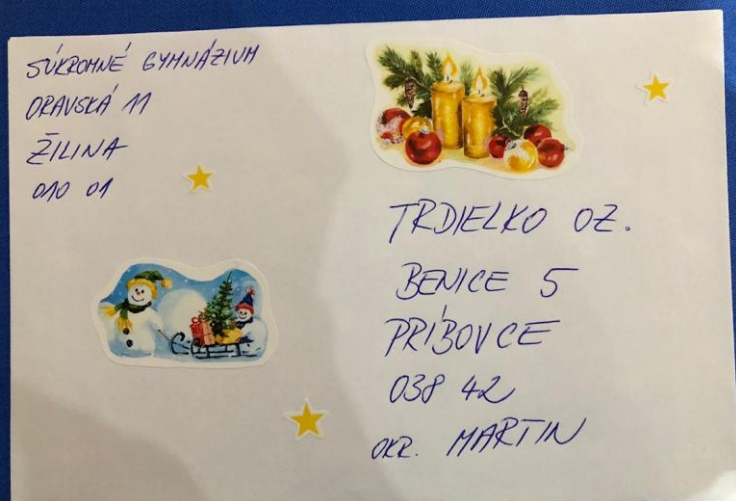 SÚKROMNÉ GYMNÁZIUM
ORAVSKÁ 11
ŽILINA
010 01
TRDIELKO OZ.
BENICE 5
PRÍBOVCE
038 42
OKR. MARTIN